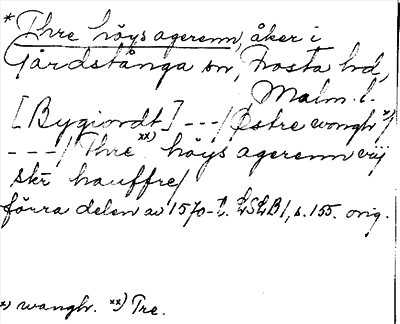 *Thre höys agerenn, åker i
Gårdstånga sn, Frosta hd,
Malm. l.
[Bygiordt] ---/Østre wongh x)/
---/ Thre xx) höys agerenn vij
skr hauffre/
förra delen av 1570-t. LSLB1, s. 155. orig.
x) wangh. xx) Tre.